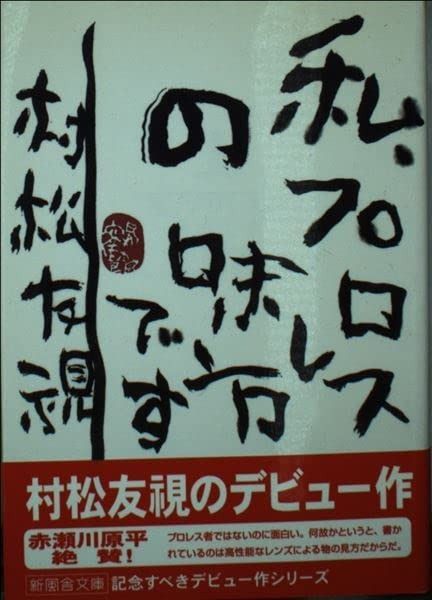 私、プロレス
の味方
です
村松友視
村松友視のデビュー作
赤瀬川原平
絶賛!
プロレス者ではないのに面白い。何故かというと、書か
れているのは高性能なレンズによる物の見方だからだ。
新風舎文庫
記念すべきデビュー作シリーズ